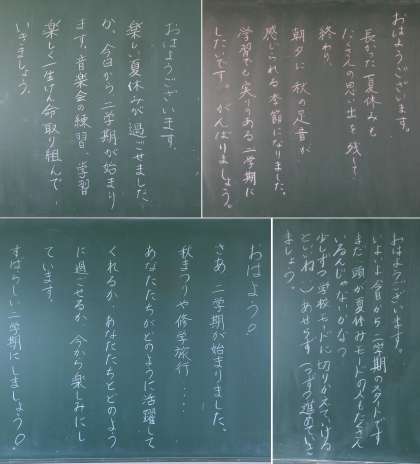 おはようございます。
楽しい夏休みが過ごせました
か。今日から二学期が始まり
ます。音楽会の練習、学習
楽しく一生けん命取り組んで
いきましょう。
おはようございます。
長かった夏休みも
たくさんの思い出を残して
終わり、
朝夕に秋の足音が
感じられる季節になりました。
学習でも実りのある二学期に
したいです。がんばりましょう。
おはよう！
さあ、二学期が始まりました。
秋まつりや修学旅行・・・・
あなたたちがどのように活躍して
くれるか、あなたたちとどのよう
に過ごせるか、今から楽しみにし
ています。
すばらしい二学期にしましょう！
おはようございます。
いよいよ今日から二学期のスタートです
まだ頭が夏休みモードの人もたくさん
いるんじゃないかなっ
少しずつ学校モードに切りかえていける
といいね。あせらず一つずつ進めていこ
ましょう。